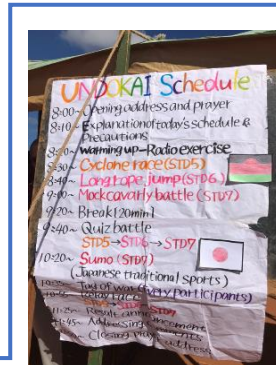 UNDOKAI Schedule
8:00~ Opening address and prayer
8:10~ Explanation of today's schedule &
Precautions
8:20~ Warming up-Radio exercise
8:30~ Cyclone race (STD5)
8:40~ Long rope jump (STD6)
9:00~ Mock cavarly battle (STD7)
9:20~ Break (20min)
9:40~ Quiz battle
STD5→STD6→STD7
10:20~ Sumo (STD7)
(Japanese traditional sports)
Tug of war (every participants)
STD7
11:25~ Result
:45~ Addressing
Closing